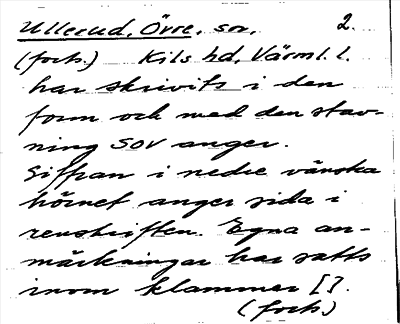 Ullerud, Övre, sov. 2.
(forts.) Kils hd, Värml. l.
har skrivits i den
form och med den stav-
ning SOV anger.
Siffran i nedre vänstra
hörnet anger sida i
renskriften. Egna an-
märkningar har satts
inom klammer [ ].
(forts)